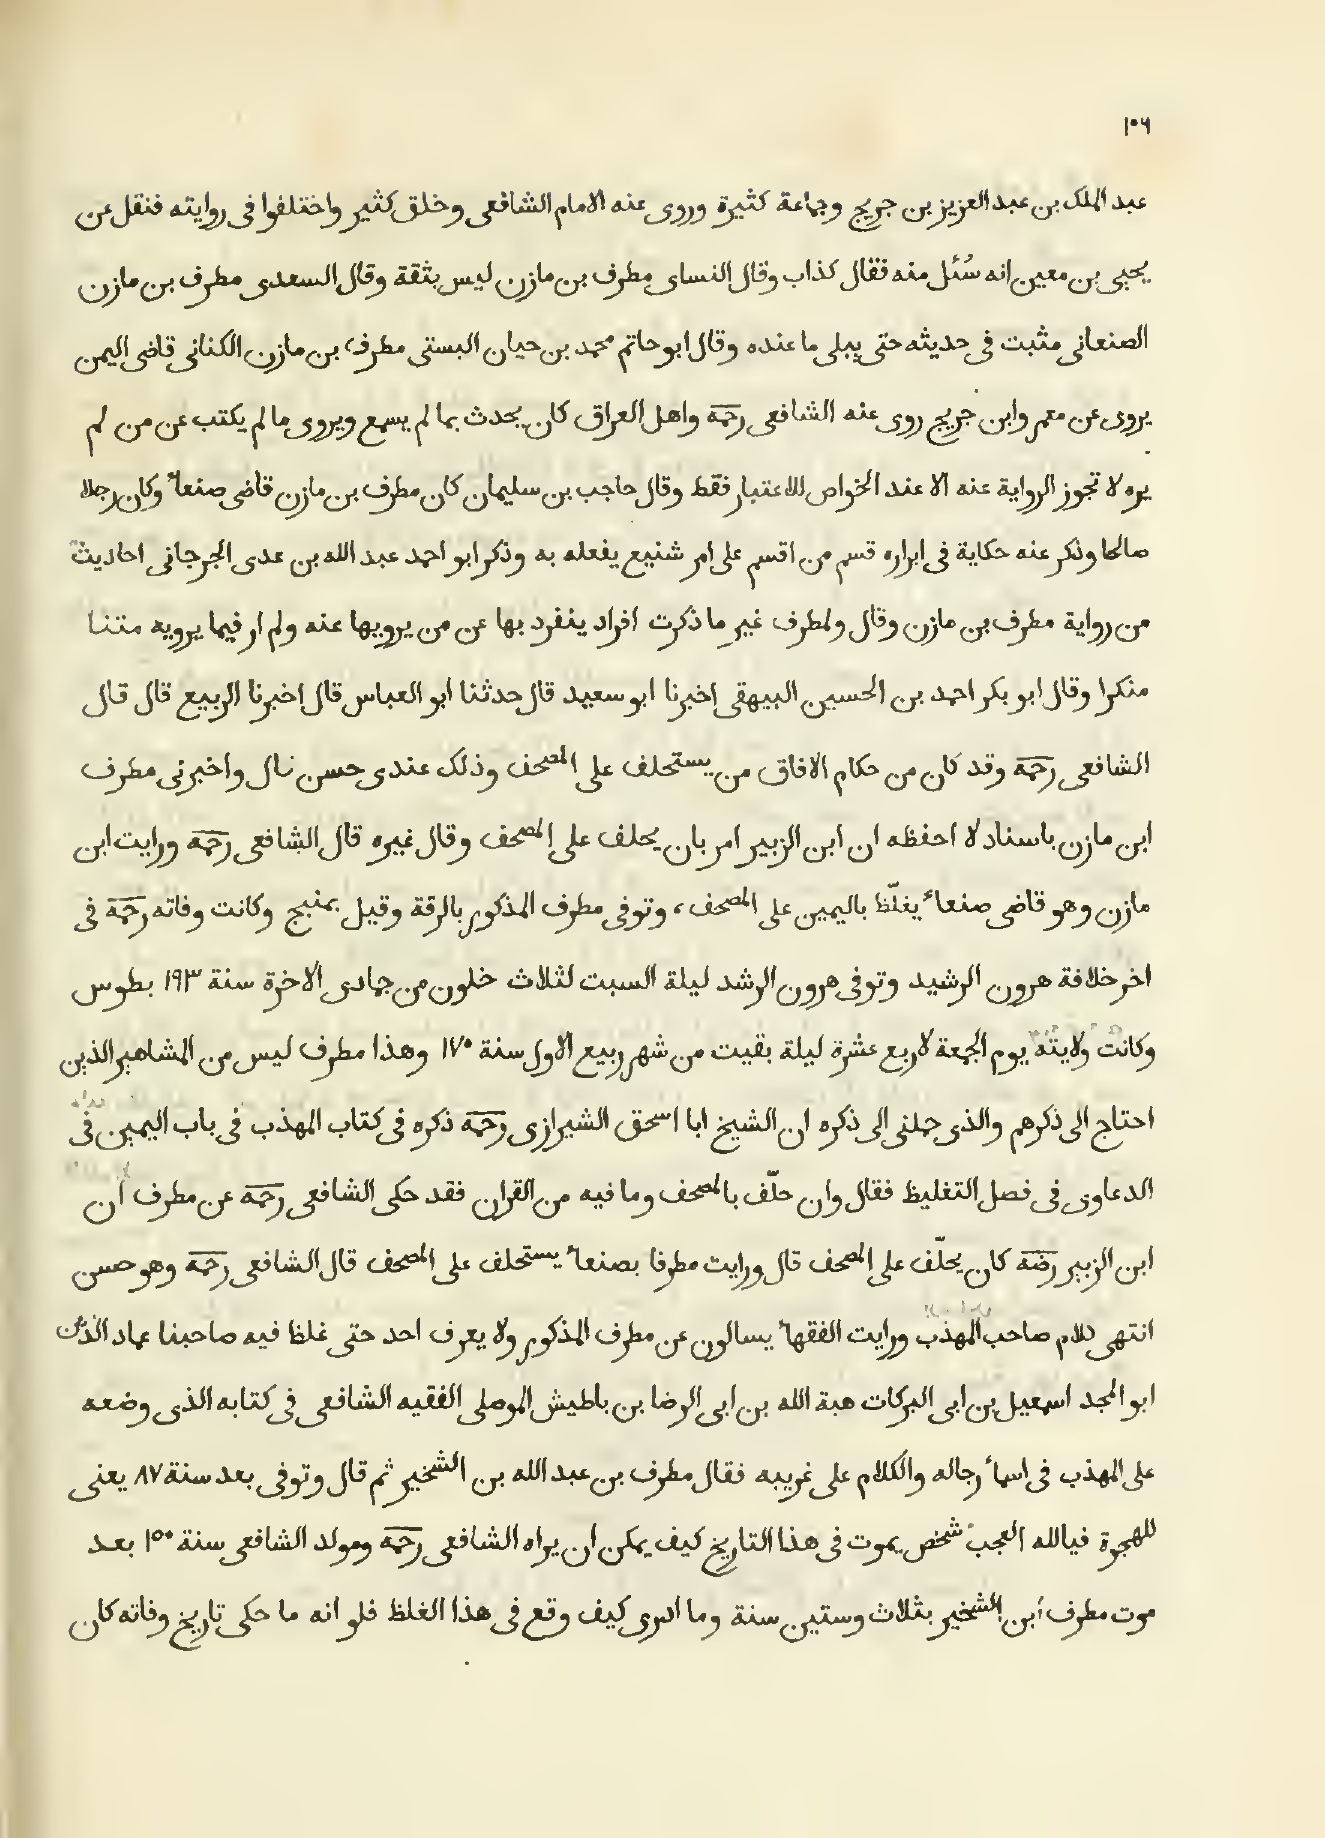 ١٠٦
عبد الملك بن عبد العزيز بن جريج وجماعة كثيرة وروى عنه الامام الشافعى وخلق كثير واختلفوا فى روايته فنقل عن
يحيى بن معين انه سُئل منه فقال كذاب وقال النساى مطرف بن مازن ليس بثقة وقال السعدى مطرف بن مازن
الصنعانى مثبت فى حديثه حتى يبلى ما عنده وقال ابو حاتم محمد بن حيان البستى مطرف بن مازن الكنانى قاضى اليمن
يروى عن معمر وابن جريج روى عنه الشافعى رحمة واهل العراق كان يحدث بما لم يسمع ويروى ما لم يكتب عن من لم
يره لا تجوز الرواية عنه الا عند الخواص للاعتبار فقط وقال حاجب بن سليمان كان مطرف بن مازن قاضى صنعاء وكان رجلا
صالحا وذكر عنه حكاية فى ابراره قسم من اقسم على امر شنيع يفعله به وذكر ابو احمد عبد الله بن عدى الجرجانى احاديث
من رواية مطرف بن مازن وقال ولمطرف غير ما ذكرت افراد ينفرد بها عن من يرويها عنه ولم ار فيما يرويه متنا
منكرا وقال ابو بكر احمد بن الحسين البيهقى اخبرنا ابو سعيد قال حدثنا ابو العباس قال اخبرنا الربيع قال قال
الشافعى رحمة وقد كان من حكام الافاق من يستحلف على المصحف وذلك عندى حسن قال واخبرنى مطرف
ابن مازن باسناد لا احفظه ان ابن الزبير امر بان يحلف على المصحف وقال غيره قال الشافعى رحمة ورايت ابن
مازن وهو قاضى صنعاء يغلّظ باليمين على المصحف، وتوفى مطرف المذكور بالرقة وقيل بمنبج وكانت وفاته رحمة فى
اخر خلافة هرون الرشيد وتوفى هرون الرشد ليلة السبت لثلاث خلون من جمادى الاخرة سنة ١٩٣ بطوس
وكانت ولايته يوم الجمعة لاربع عشرة ليلة بقيت من شهر ربيع الاول سنة ١٧٠ وهذا مطرف ليس من المشاهير الذين
احتاج الى ذكرهم والذى حملنى الى ذكره ان الشيخ ابا اسحق الشيرازى رحمة ذكره فى كتاب المهذب فى باب اليمين فى
الدعاوى فى فصل التغليظ فقال وان حلّف بالمصحف وما فيه من القران فقد حكى الشافعى رحمة عن مطرف ان
ابن الزبير رضة كان يحلّف على المصحف قال ورايت مطرفا بصنعاء يستحلف على المصحف قال الشافعى رحمة وهو حسن
انتهى كلام صاحب المهذب ورايت الفقهاء يسالون عن مطرف المذكور ولا يعرف احد حتى غلظ فيه صاحبنا عماد الدين
ابو المجد اسمعيل بن ابى البركات هبة الله بن ابى الرضا بن باطيش الموصلى الفقيه الشافعى فى كتابه الذى وضعه
على المهذب فى اسماء رجاله والكلام على غريبه فقال مطرف بن عبد الله بن الشخير ثم قال وتوفى بعد سنة ٨٧ يعنى
للهجرة فيالله العجب شخص يموت فى هذا التاريخ كيف يمكن ان يراه الشافعى رحمة ومولد الشافعى سنة ١٥٠ بعد
موت مطرف ابن الشخير بثلاث وستين سنة وما ادرى كيف وقع فى هذا الغلظ فلو انه ما حكى تاريخ وفاته كان